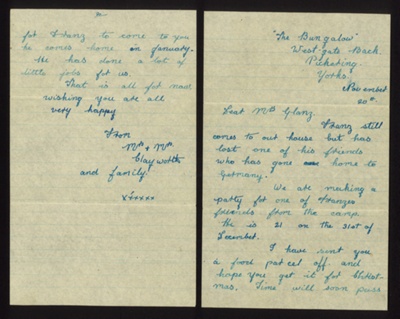 "The Bungalow"
West gate Back.
Pickering.
Yorks.
November
20th.
Dear Mrs Glanz.
Franz still
comes to our house but has
lost one of his friends
who has gone home to
Germany.
We are making a
party for one of Franzes
friends from the camp.
He is 21 on the 31st of
December.
I have sent you
a food parcel off. and
hope you get it for Christ-
mas. Time will soon pass
for Franz to come to you
he comes home in January.
He has done a lot of
little jobs for us.
That is all for now
wishing you are all
very happy
From
Mr & Mrs
Clayworth
and family.
xxxxxx